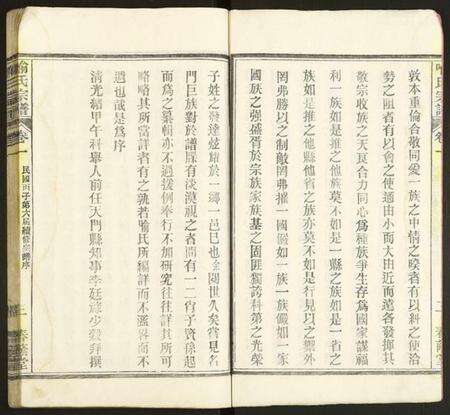 喻氏宗譜 卷一
敦本重倫合敬同愛一族之中情之暌者有以糾之使洽
勢之阻者有以會之使通由小而大由近而遠各發揮其
敬宗收族之天良合力同心為種族爭生存為國家謀福
利一族如是推之他族莫不如是一縣之族如是一省之
族如是推之他縣他省之族亦莫不如是行見以之禦外
罔弗勝以之制敵罔弗摧一國儼如一族一族儼如一家
國族之強盛胥於宗族家族基之固匪獨誇科第之光榮
二
子姓之發達炫耀於一鄉一邑已也余閱世久矣嘗見名
門巨族對於譜牒有淡漠視之者間有一二肖子賢孫起
而為之纂輯亦不過援例奉行不加研究往往詳其所可
略略其所當詳者有之孰若喻氏所編詳而不濫略而不
遺也哉是為序
清光緒甲午科舉人前任天門縣知事李廷
撰
喻氏宗譜 卷一
民國丙子第六屆續修
序
三